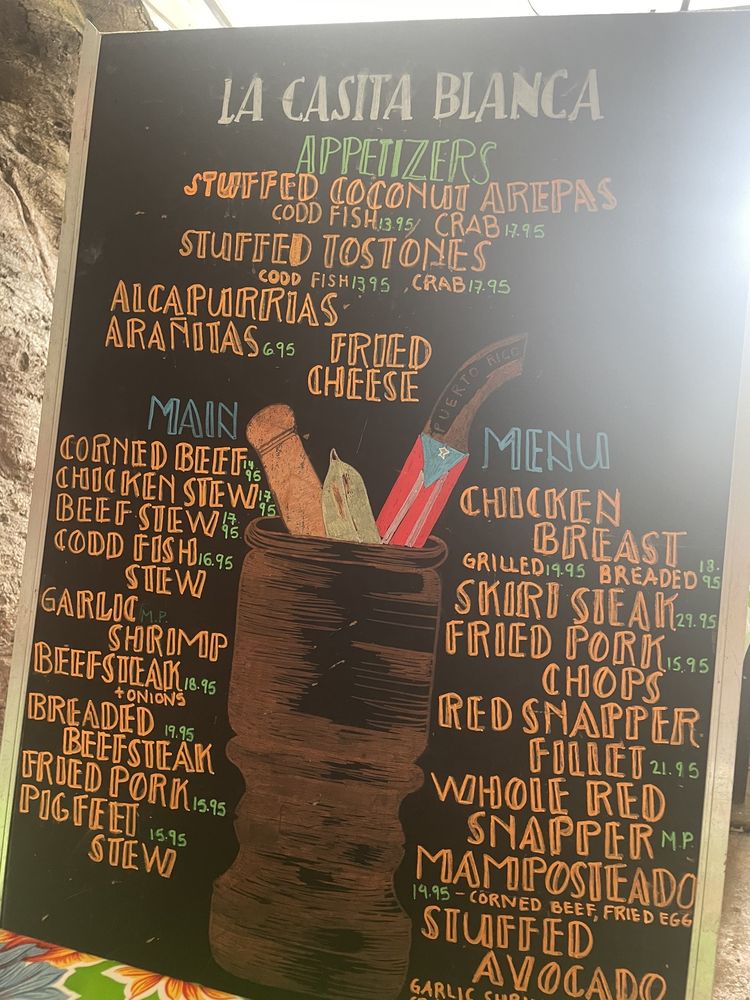 LA CASITA BLANCA
APPETIZERS
STUFFED COCONUT AREPAS
CODD FISH 13.95/ CRAB 17.95
STUFFED TOSTONES
CODD FISH 13.95 , CRAB 17.95
ALCAPURRIAS
ARAÑITAS 6.95
FRIED
CHEESE
PUERTO RICO
MAIN
CORNED BEEF 14.95
CHICKEN STEW 17.95
BEEF STEW 17.95
CODD FISH 16.95
STEW
GARLIC M.P.
SHRIMP
BEEFSTEAK 18.95
+ONIONS
BREADED 19.95
BEEFSTEAK
FRIED PORK 15.95
PIG FEET 15.95
STEW
MENU
CHICKEN
BREAST
GRILLED 19.95 BREADED 18.95
SKIRT STEAK 29.95
FRIED PORK 15.95
CHOPS
RED SNAPPER
FILLET 21.95
WHOLE RED
SNAPPER M.P.
MAMPOSTEADO
14.95 - CORNED BEEF, FRIED EGG
STUFFED
AVOCADO
GARLIC